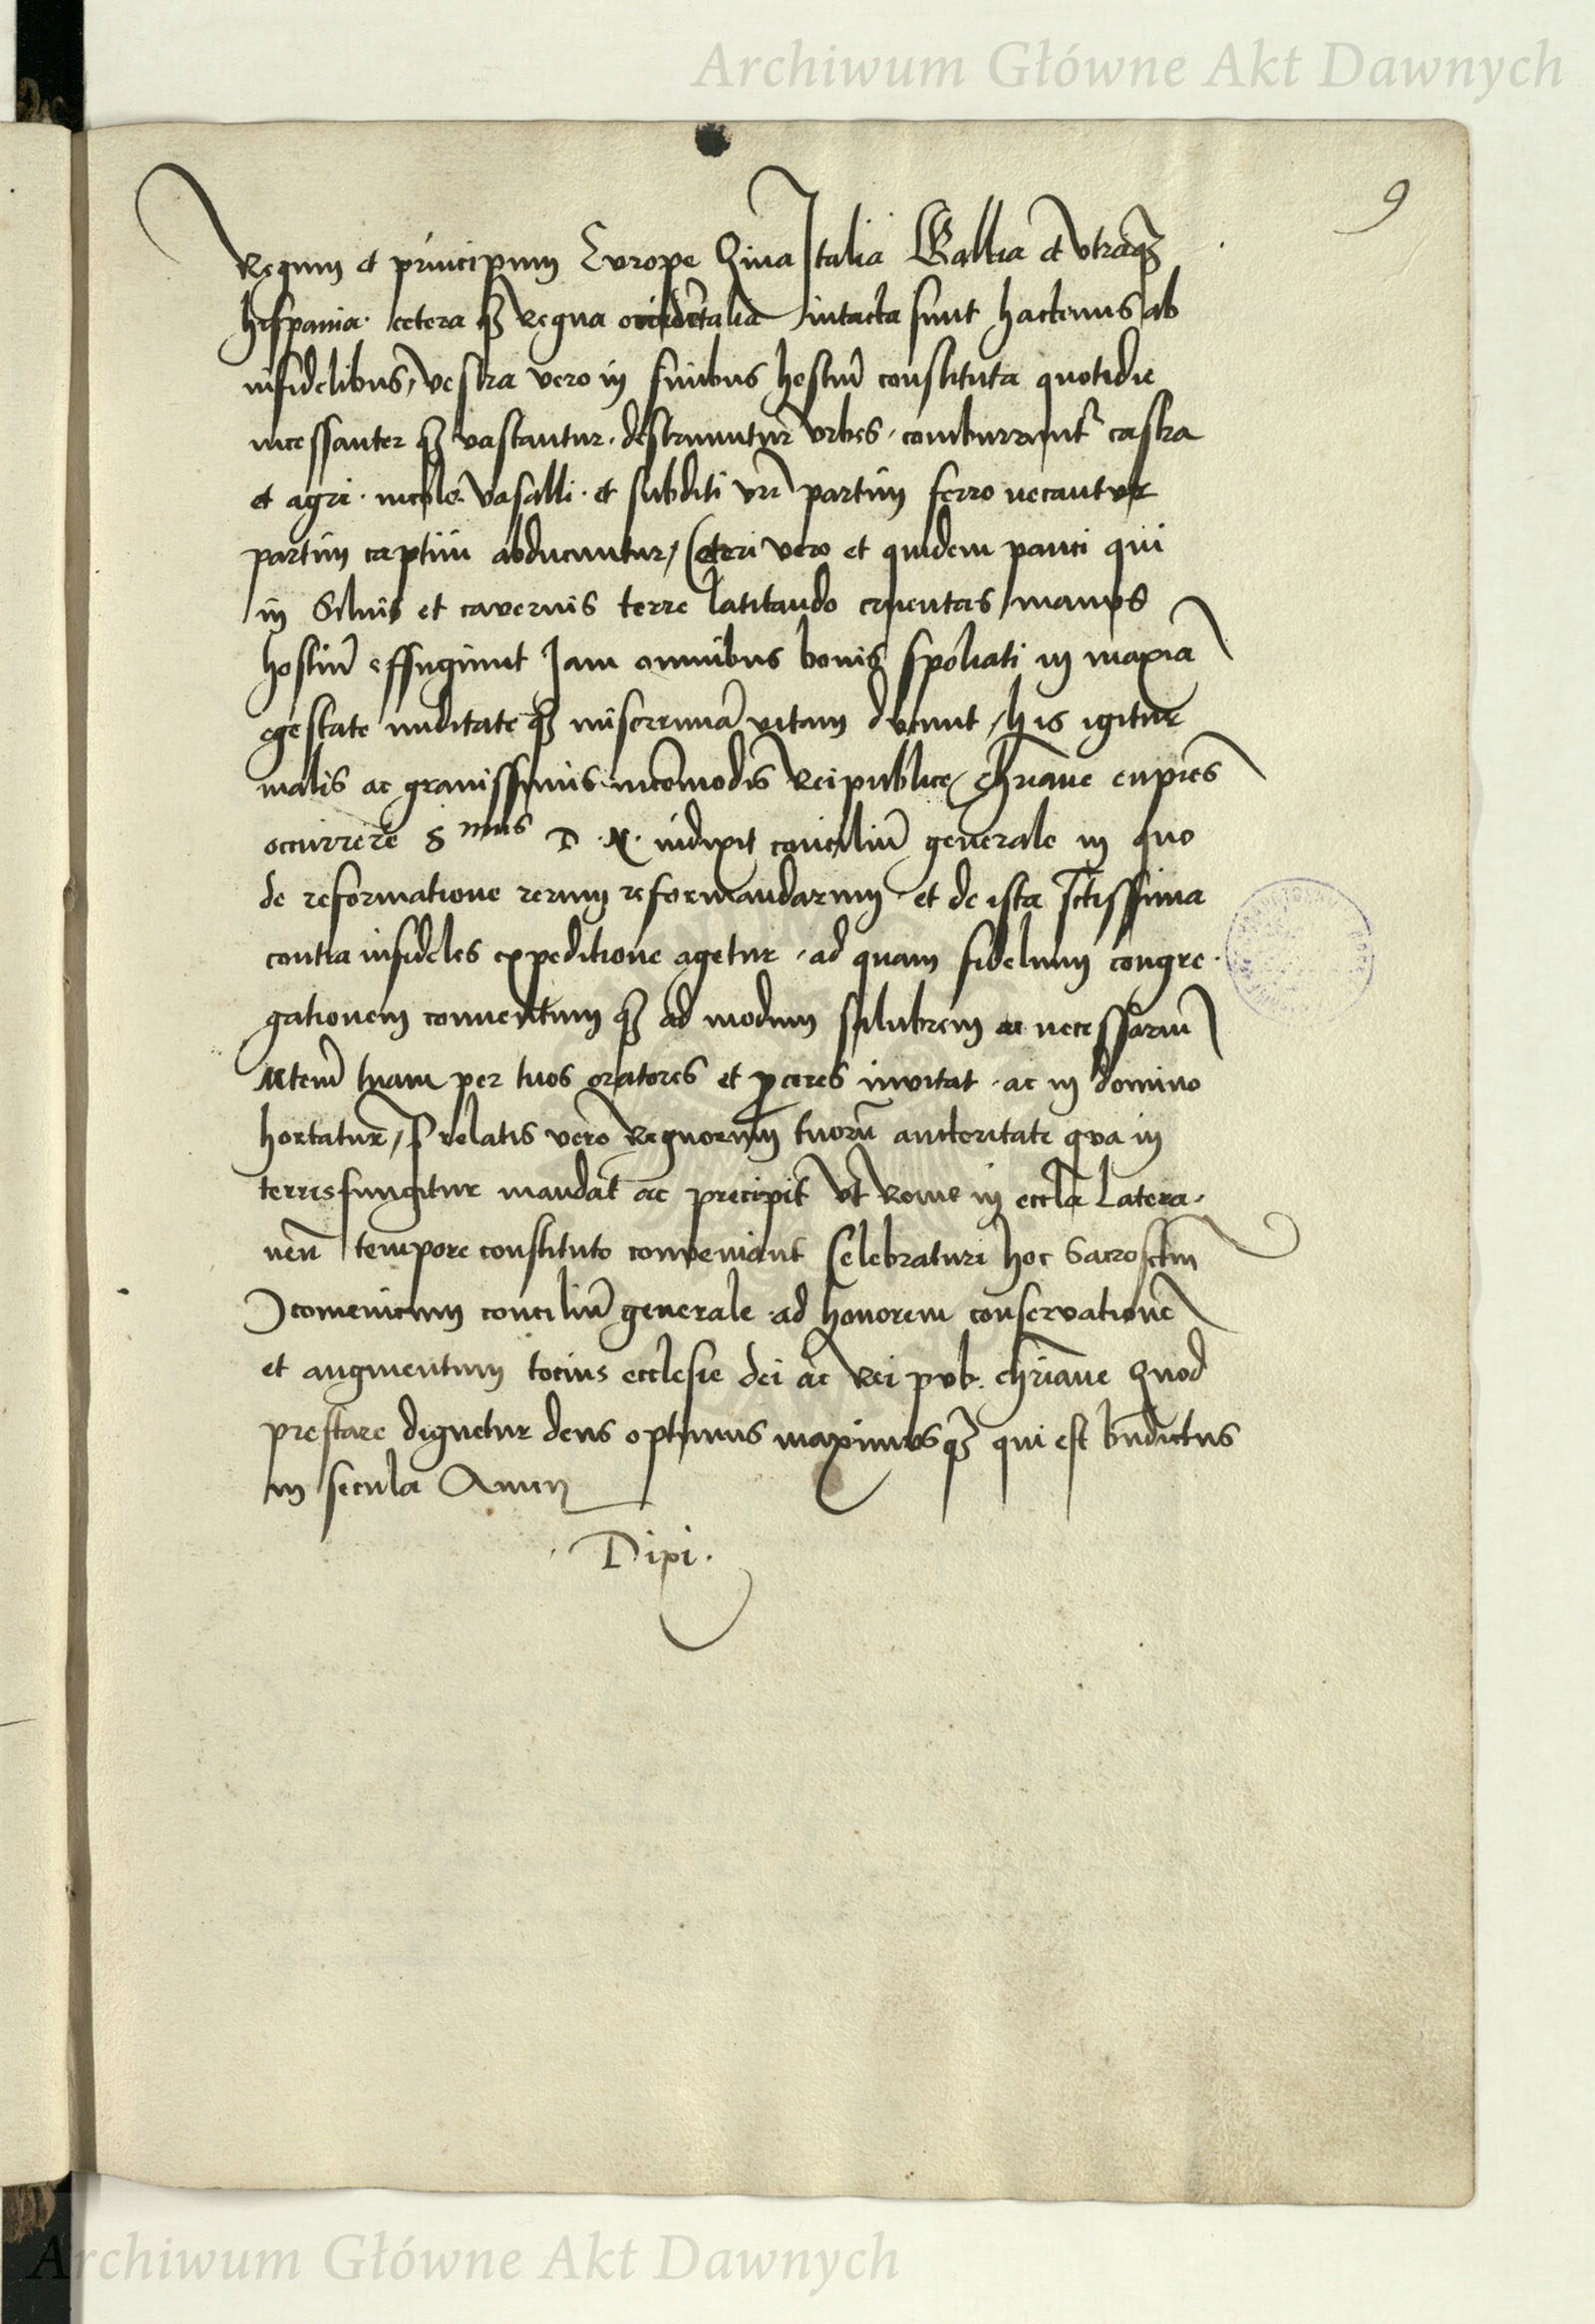 Archiwum Główne Akt Dawnych
9
Regum et principum Europe Quia Italia Gallia et utraq3
hispania. cetera q3 Regna occidētalia intacta sunt hactenus ab
infidelibus, vestra vero in finibus hostiū constituta quotidie
incessanter q3 vastantur. destruuntur urbes. comburrunt castra
et agri. incole vasalli. et subditi vrī partim ferro necantur
partim captivi abducuntur, Ceteri vero et quidem pauci qui
in Silvis et cavernis terre latitando cruentas manus
hostiū effugiunt Jam omnibus bonis spoliati in maxīa
egestate nuditate q3 miserrimā vitam ducunt, his igitur
malis ac gravissimis incōmodis Reipublice chrīane cupiēs
occurrere Smus D. N. indixit conciliū generale in quo
de reformatione rerum reformandarum. et de ista sctissima
contra infideles expeditione agetur. ad quam fidelium congre.
gationem conventum q3 ad modum salubrem ac necessariū
Mtem tuam per tuos oratores et proceres invitat. ac in domino
hortatur, Prelatis vero Regnorum tuorū auctoritate qua in
terris fungitur mandat ac precipit ut Rome in eccla Latera.
neñ tempore constituto conveniant Celebraturi hoc Sacrosctm
Ycomenicum conciliū generale. ad honorem conservationē
et augmentum tocius ecclesie dei ac Rei pub. chrīane Quod
prestare dignetur deus optimus maximus q3 qui est bndictus
in secula Amen
. Dixi.
Archiwum Główne Akt Dawnych